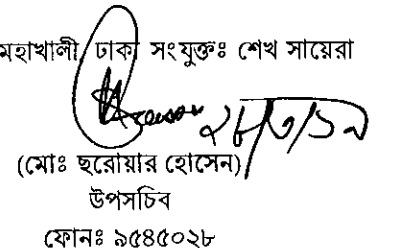 মহাখালী, ঢাকা সংযুক্তঃ শেখ সায়েরা
২৮/৩/১৯
(মোঃ ছরোয়ার হোসেন)
উপসচিব
ফোনঃ ৯৫৪৫০২৮